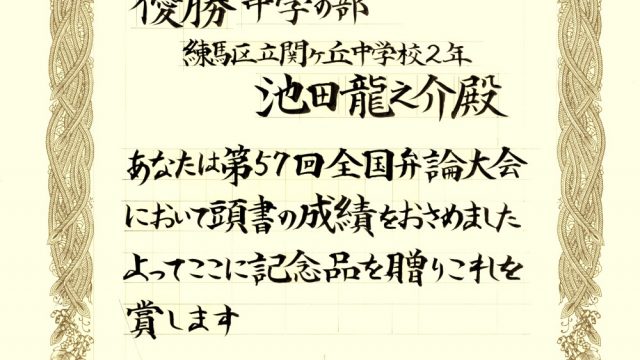 優勝 中学の部
練馬区立関ヶ丘中学校2年
池田龍之介殿
あなたは第57回全国弁論大会
において頭書の成績をおさめました
よってここに記念品を贈りこれを
賞します